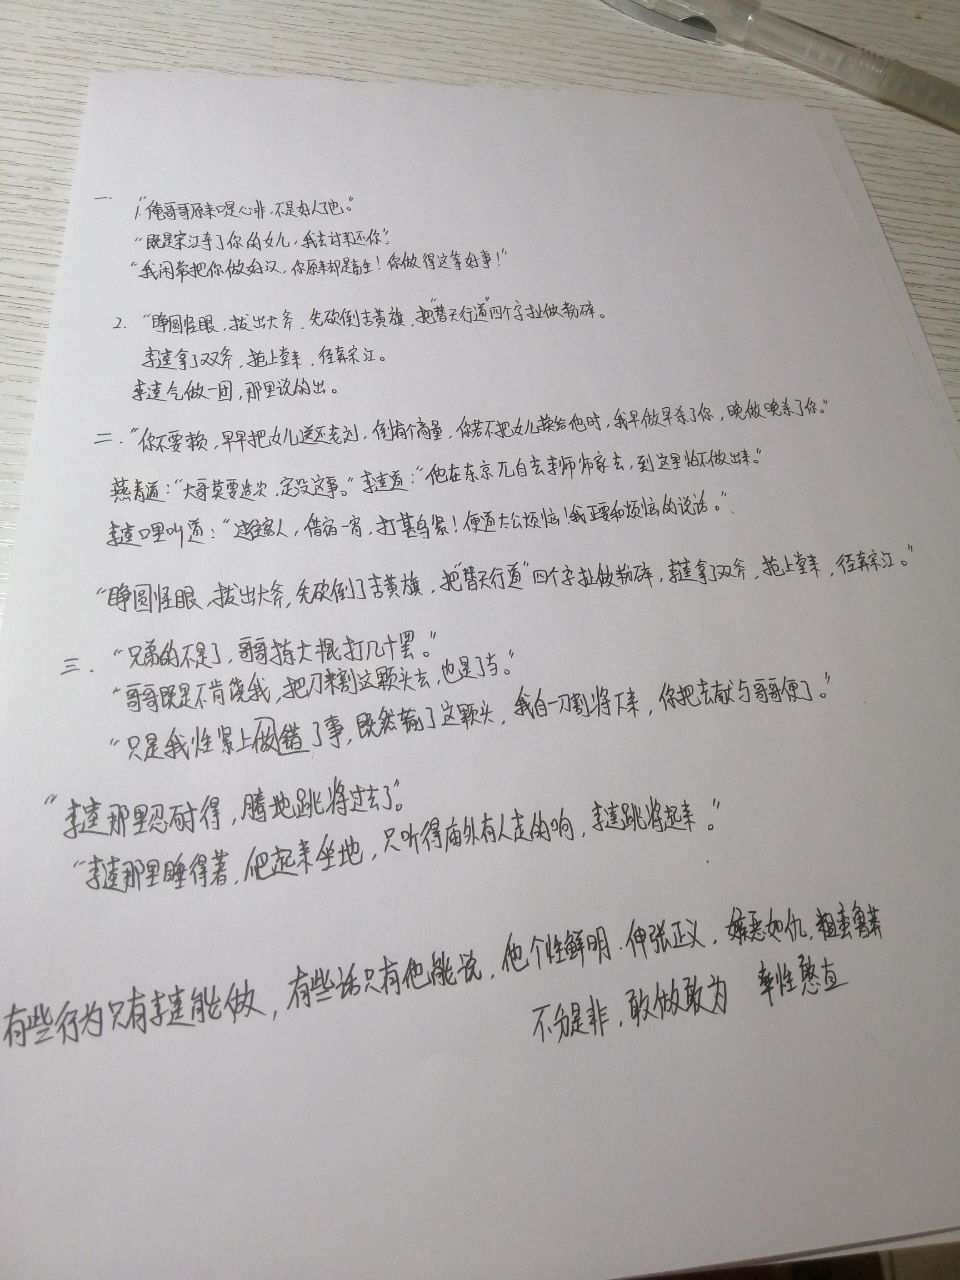 一. 1."俺哥哥原来口是心非,不是好人了也。"
"既是宋江夺了你的女儿,我去讨来还你"。
"我闲常把你做好汉,你原来却是畜生!你做得这等好事!"
2. "睁圆怪眼,拔出大斧,先砍倒杏黄旗,把"替天行道"四个字扯做粉碎。
李逵拿了双斧,抢上堂来,径奔宋江。
李逵气做一团,那里说的出。
二."你不要赖,早早把女儿送还老刘,倒有个商量,你若不把女儿还给他时,我早做早杀了你,晚做晚杀了你。"
燕青道:"大哥莫要造次,定没这事。"李逵道:"他在东京兀自去李师师家去,到这里怕不做出来。"
李逵口里叫道:"过往客人,借宿一宵,打甚鸟紧!便道太公烦恼!我正要和烦恼的说话。"
"睁圆怪眼,拔出大斧,先砍倒了杏黄旗,把"替天行道"四个字扯做粉碎,李逵拿了双斧,抢上堂来,径奔宋江。"
三."兄弟的不是了,哥哥拣大棍打几十罢。"
"哥哥既是不肯饶我,把刀来割这颗头去,也是了当。"
"只是我性紧上做错了事,既然输了这颗头,我自一刀割将下来,你把去献与哥哥便了。"
"李逵那里忍耐得,腾地跳将过去了"。
"李逵那里睡得着,爬起来坐地,只听得庙外有人走的响,李逵跳将起来。"
有些行为只有李逵能做,有些话只有他能说,他个性鲜明.伸张正义,嫉恶如仇,粗蛮鲁莽
不分是非,敢做敢为 率性憨直